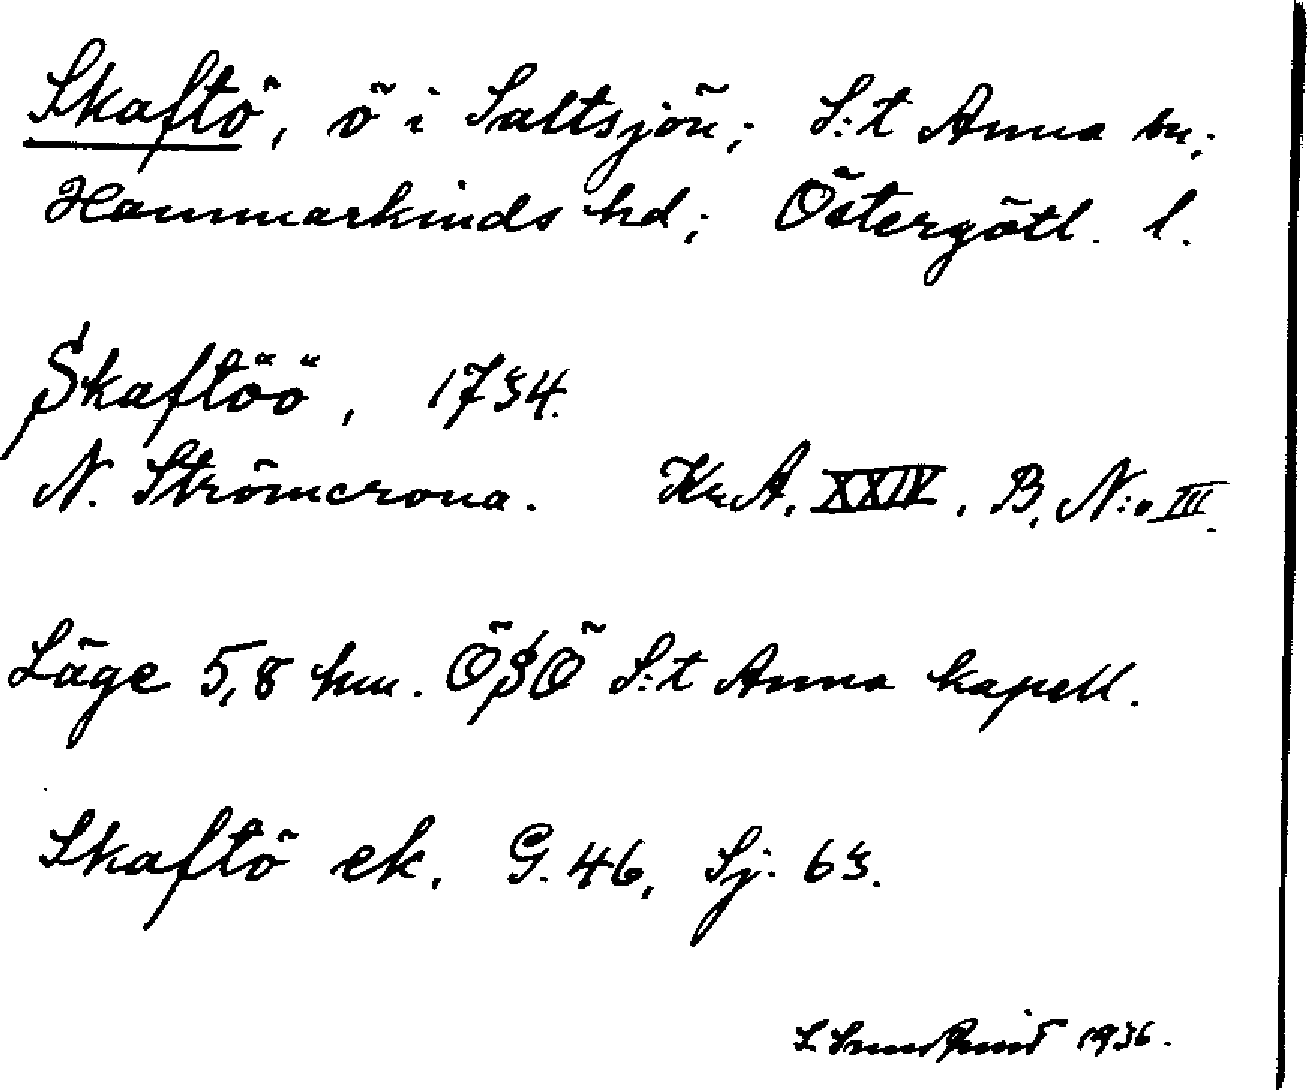 Skaftö, ö i Saltsjön; S:t Anna sn;
Hammarkinds hd; Östergötl. l.
Skaftöö, 1734.
N. Strömcrona. KrA. XXIV. B. N:o III.
Läge 5,8 km. ÖSÖ S:t Anna kapell.
Skaftö ek. G. 46, Sj. 63.
1936.